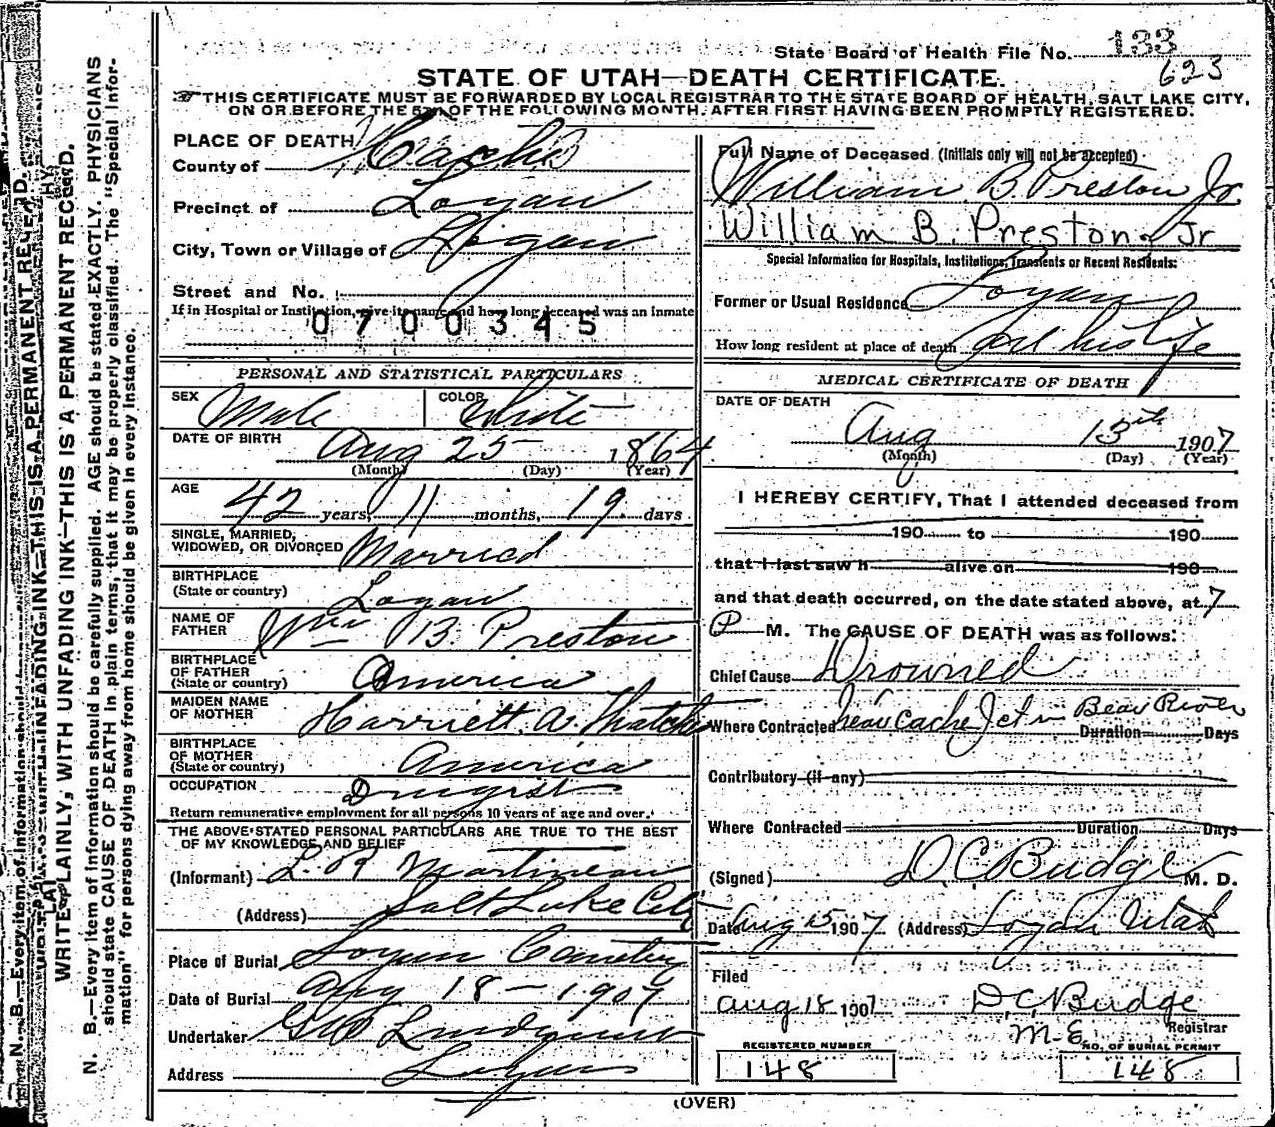 State Board of Health File No. 133
623
STATE OF UTAH—DEATH CERTIFICATE.
THIS CERTIFICATE MUST BE FORWARDED BY LOCAL REGISTRAR TO THE STATE BOARD OF HEALTH, SALT LAKE CITY,
ON OR BEFORE THE 5th OF THE FOLLOWING MONTH, AFTER FIRST HAVING BEEN PROMPTLY REGISTERED.
PLACE OF DEATH
County of Cache
Precinct of Logan
City, Town or Village of Logan
Street and No.
If in Hospital or Institution, give its name and how long deceased was an inmate
0700345
PERSONAL AND STATISTICAL PARTICULARS
SEX Male COLOR White
DATE OF BIRTH Aug 25 1864
(Month) (Day) (Year)
AGE 42 years, 11 months, 19 days
SINGLE, MARRIED,
WIDOWED, OR DIVORCED Married
BIRTHPLACE
(State or country) Logan
NAME OF
FATHER Wm B. Preston
BIRTHPLACE
OF FATHER
(State or country) America
MAIDEN NAME
OF MOTHER Harriett A. Thatcher
BIRTHPLACE
OF MOTHER
(State or country) America
OCCUPATION Drugist
Return remunerative employment for all persons 10 years of age and over.
THE ABOVE STATED PERSONAL PARTICULARS ARE TRUE TO THE BEST
OF MY KNOWLEDGE AND BELIEF
(Informant) L. R Martineau
(Address) Salt Lake City
Place of Burial Logan Cemetery
Date of Burial Aug 18 - 1907
Undertaker Lindquist
Address Logan
Full Name of Deceased (Initials only will not be accepted)
William B. Preston Jr.
William B. Preston, Jr
Special Information for Hospitals, Institutions, Transients or Recent Residents:
Former or Usual Residence Logan
How long resident at place of death all his life
MEDICAL CERTIFICATE OF DEATH
DATE OF DEATH
Aug 13th 1907
(Month) (Day) (Year)
I HEREBY CERTIFY, That I attended deceased from
190 to 190
that I last saw h alive on 190
and that death occurred, on the date stated above, at 7
P M. The CAUSE OF DEATH was as follows:
Chief Cause Drowned
Where Contracted near Cache Jct in Bear River
Duration Days
Contributory (if any)
Where Contracted Duration Days
(Signed) D. C. Budge M. D.
Date Aug 15 1907 (Address) Logan Utah
Filed
Aug 18 1907 D. C. Budge
M.E. Registrar
REGISTERED NUMBER
148
NO. OF BURIAL PERMIT
148
(OVER)
WRITE PLAINLY, WITH UNFADING INK—THIS IS A PERMANENT RECORD.
N. B.—Every item of information should be carefully supplied. AGE should be stated EXACTLY. PHYSICIANS
should state CAUSE OF DEATH in plain terms, that it may be properly classified. The "Special Infor-
mation" for persons dying away from home should be given in every instance.